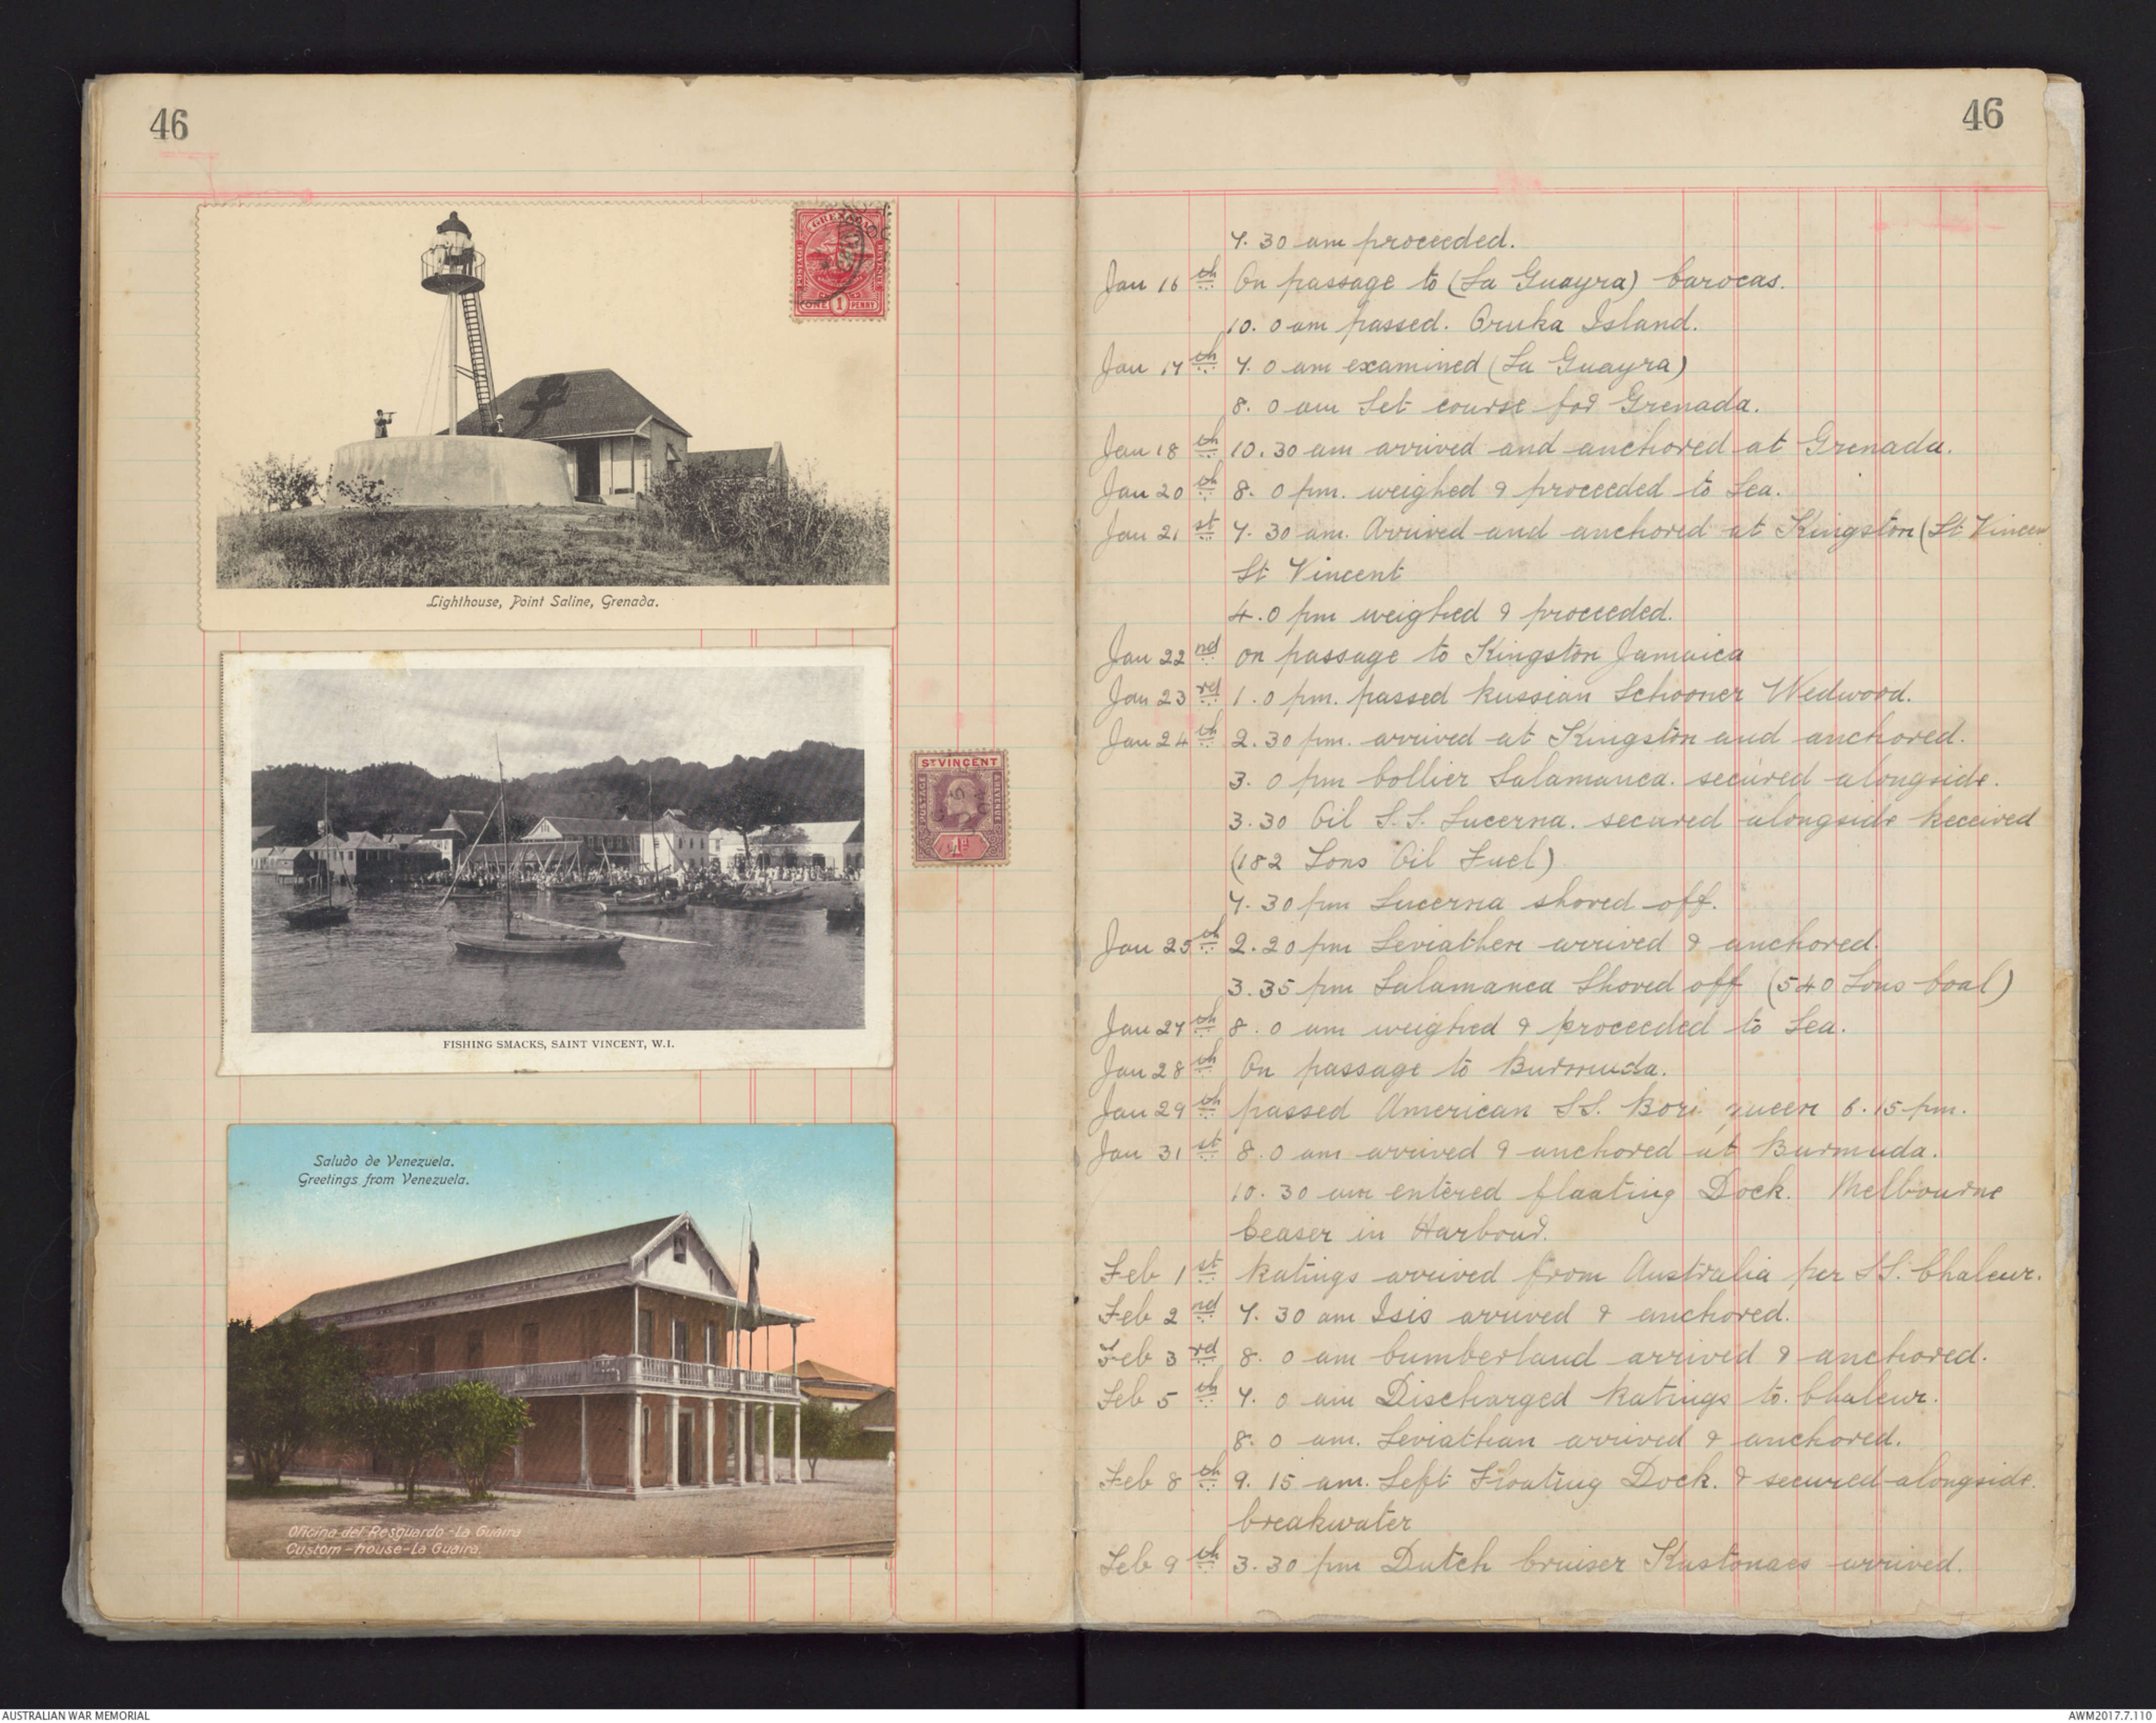 46
GRENADA
POSTAGE
REVENUE
ONE 1 PENNY
Lighthouse, Point Saline, Grenada.
ST VINCENT
POSTAGE
& REVENUE
1d
FISHING SMACKS, SAINT VINCENT, W.I.
Saludo de Venezuela.
Greetings from Venezuela.
Oficina del Resguardo - La Guaira
Custom-house - La Guaira.
46
7. 30 am proceeded.
Jan 16th On passage to (La Guayra) Carocas.
10. 0 am passed. Oruka Island.
Jan 17th 7. 0 am examined (La Guayra)
8. 0 am Set course for Grenada.
Jan 18th 10. 30 am arrived and anchored at Grenada.
Jan 20th 8. 0 pm. weighed & proceeded to Sea.
Jan 21st 7. 30 am. Arrived and anchored at Kingston (St Vincen
St Vincent
4. 0 pm weighed & proceeded.
Jan 22nd on passage to Kingston Jamaica
Jan 23rd 1. 0 pm. passed Russian Schooner Wedwood.
Jan 24th 2. 30 pm. arrived at Kingston and anchored.
3. 0 pm Collier Salamanca. secured alongside.
3. 30 Oil S.S. Lucerna. secured alongside Received
(182 Tons Oil Fuel)
7. 30 pm Lucerna shoved off.
Jan 25th 2. 20 pm Leviathen arrived & anchored.
3. 35 pm Salamanca Shoved off (540 Tons Coal)
Jan 27th 8. 0 am weighed & proceeded to Sea.
Jan 28th On passage to Burmuda.
Jan 29th passed American S.S. Bori queen 6. 15 pm.
Jan 31st 8. 0 am arrived & anchored at Burmuda.
10. 30 am entered flaating Dock. Melbourne
Ceaser in Harbour.
Feb 1st Ratings arrived from Australia per S.S. Chaleur.
Feb 2nd 7. 30 am Isis arrived & anchored.
Feb 3rd 8. 0 am Cumberland arrived & anchored.
Feb 5th 7. 0 am Discharged Ratings to. Chaleur.
8. 0 am. Leviathan arrived & anchored.
Feb 8th 9. 15 am. Left Floating Dock. & secured alongside.
breakwater
Feb 9th 3. 30 pm Dutch Cruiser Kustonaes arrived.
AUSTRALIAN WAR MEMORIAL
AWM2017.7.110